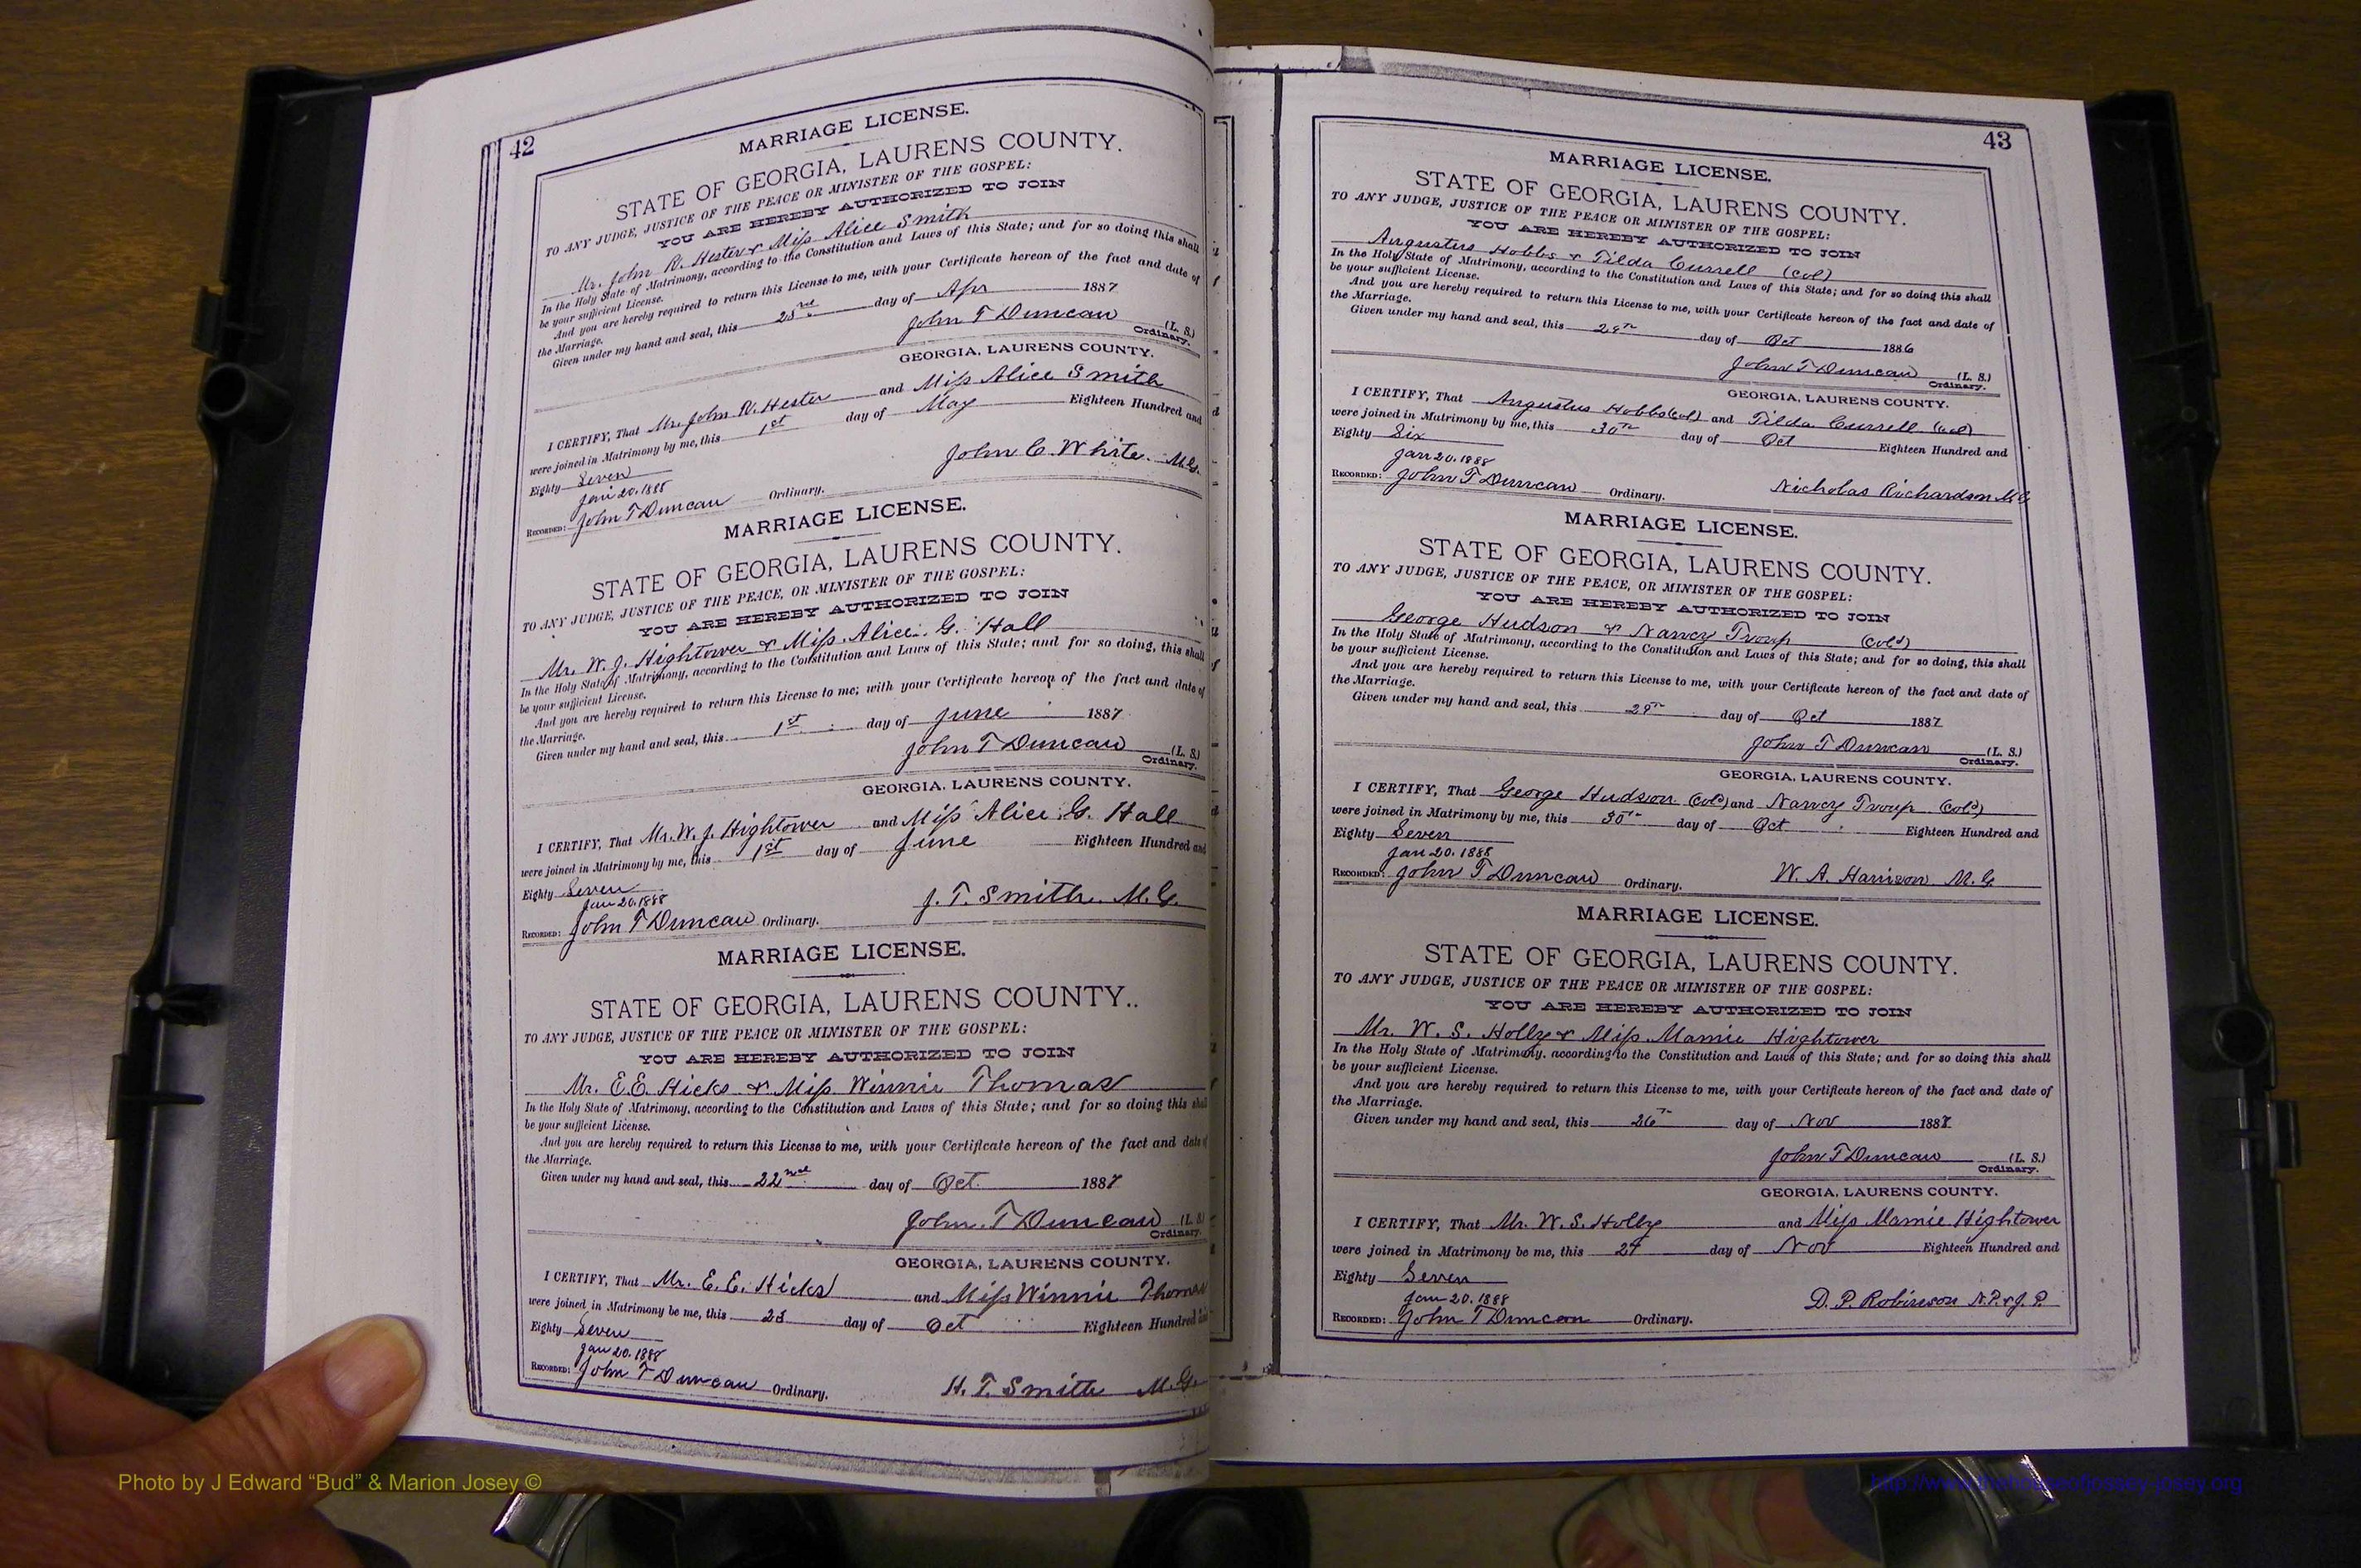 42
MARRIAGE LICENSE.
STATE OF GEORGIA, LAURENS COUNTY.
TO ANY JUDGE, JUSTICE OF THE PEACE OR MINISTER OF THE GOSPEL:
YOU ARE HEREBY AUTHORIZED TO JOIN
Mr. John R. Hester & Miss Alice Smith
In the Holy State of Matrimony, according to the Constitution and Laws of this State; and for so doing this shall
be your sufficient License.
And you are hereby required to return this License to me, with your Certificate hereon of the fact and date of
the Marriage.
Given under my hand and seal, this day of Apr 1887
John T Duncan (L. S.)
Ordinary.
GEORGIA, LAURENS COUNTY.
I CERTIFY, That Mr. John R. Hester and Miss Alice Smith
were joined in Matrimony by me, this 1st day of May Eighteen Hundred and
Eighty Seven
John C. White. M.G.
Jan 20. 1888
RECORDED: John T Duncan Ordinary.
MARRIAGE LICENSE.
STATE OF GEORGIA, LAURENS COUNTY.
TO ANY JUDGE, JUSTICE OF THE PEACE, OR MINISTER OF THE GOSPEL:
YOU ARE HEREBY AUTHORIZED TO JOIN
Mr. W. J. Hightower & Miss Alice G. Hall
In the Holy State of Matrimony, according to the Constitution and Laws of this State; and for so doing, this shall
be your sufficient License.
And you are hereby required to return this License to me; with your Certificate hereon of the fact and date of
the Marriage.
Given under my hand and seal, this 1st day of June 1887
John T Duncan (L. S.)
Ordinary.
GEORGIA, LAURENS COUNTY.
I CERTIFY, That Mr. W. J. Hightower and Miss Alice G. Hall
were joined in Matrimony by me, this 1st day of June Eighteen Hundred and
Eighty Seven
Jan 20. 1888
J. T. Smith. M.G.
RECORDED: John T Duncan Ordinary.
MARRIAGE LICENSE.
STATE OF GEORGIA, LAURENS COUNTY..
TO ANY JUDGE, JUSTICE OF THE PEACE OR MINISTER OF THE GOSPEL:
YOU ARE HEREBY AUTHORIZED TO JOIN
Mr. E.E. Hicks & Miss Winnie Thomas
In the Holy State of Matrimony, according to the Constitution and Laws of this State; and for so doing this shall
be your sufficient License.
And you are hereby required to return this License to me, with your Certificate hereon of the fact and date of
the Marriage.
Given under my hand and seal, this 22nd day of Oct. 1887
John. T Duncan (L. S.)
Ordinary.
GEORGIA, LAURENS COUNTY.
I CERTIFY, That Mr. E. E. Hicks and Miss Winnie Thomas
were joined in Matrimony be me, this 23 day of Oct Eighteen Hundred and
Eighty Seven
Jan 20. 1888
RECORDED: John T Duncan Ordinary. H. T. Smith M.G.
43
MARRIAGE LICENSE.
STATE OF GEORGIA, LAURENS COUNTY.
TO ANY JUDGE, JUSTICE OF THE PEACE OR MINISTER OF THE GOSPEL:
YOU ARE HEREBY AUTHORIZED TO JOIN
Augustus Hobbs & Tilda Currell (col)
In the Holy State of Matrimony, according to the Constitution and Laws of this State; and for so doing this shall
be your sufficient License.
And you are hereby required to return this License to me, with your Certificate hereon of the fact and date of
the Marriage.
Given under my hand and seal, this day of Oct 1886
John T Duncan (L. S.)
Ordinary.
GEORGIA, LAURENS COUNTY.
I CERTIFY, That Augustus Hobbs (col) and Tilda Currell (col)
were joined in Matrimony by me, this 30th day of Oct Eighteen Hundred and
Eighty Six
Jan 20. 1888
RECORDED: John T Duncan Ordinary. Nicholas Richardson M.G
MARRIAGE LICENSE.
STATE OF GEORGIA, LAURENS COUNTY.
TO ANY JUDGE, JUSTICE OF THE PEACE, OR MINISTER OF THE GOSPEL:
YOU ARE HEREBY AUTHORIZED TO JOIN
George Hudson & Nancy Troup (cold)
In the Holy State of Matrimony, according to the Constitution and Laws of this State; and for so doing, this shall
be your sufficient License.
And you are hereby required to return this License to me, with your Certificate hereon of the fact and date of
the Marriage.
Given under my hand and seal, this 29th day of Oct 1887
John T Duncan (L. S.)
Ordinary.
GEORGIA, LAURENS COUNTY.
I CERTIFY, That George Hudson (cold) and Nancy Troup (cold)
were joined in Matrimony by me, this 30th day of Oct Eighteen Hundred and
Eighty Seven
Jan 20. 1888
RECORDED: John T Duncan Ordinary. W. A. Harrison M. G.
MARRIAGE LICENSE.
STATE OF GEORGIA, LAURENS COUNTY.
TO ANY JUDGE, JUSTICE OF THE PEACE OR MINISTER OF THE GOSPEL:
YOU ARE HEREBY AUTHORIZED TO JOIN
Mr. W. S. Holly & Miss Mamie Hightower
In the Holy State of Matrimony, according to the Constitution and Laws of this State; and for so doing this shall
be your sufficient License.
And you are hereby required to return this License to me, with your Certificate hereon of the fact and date of
the Marriage.
Given under my hand and seal, this 26th day of Nov 1887
John T Duncan (L. S.)
Ordinary.
GEORGIA, LAURENS COUNTY.
I CERTIFY, That Mr. W. S. Holly and Miss Mamie Hightower
were joined in Matrimony be me, this 27 day of Nov Eighteen Hundred and
Eighty Seven
Jan 20. 1888
D. P. Robinson N.P.&J.P.
RECORDED: John T Duncan Ordinary.
Photo by J Edward “Bud” & Marion Josey ©